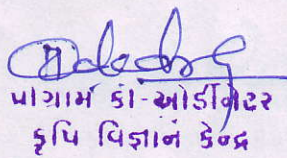 પ્રોગ્રામ કો-ઓર્ડીનેટર
કૃષિ વિજ્ઞાન કેન્દ્ર